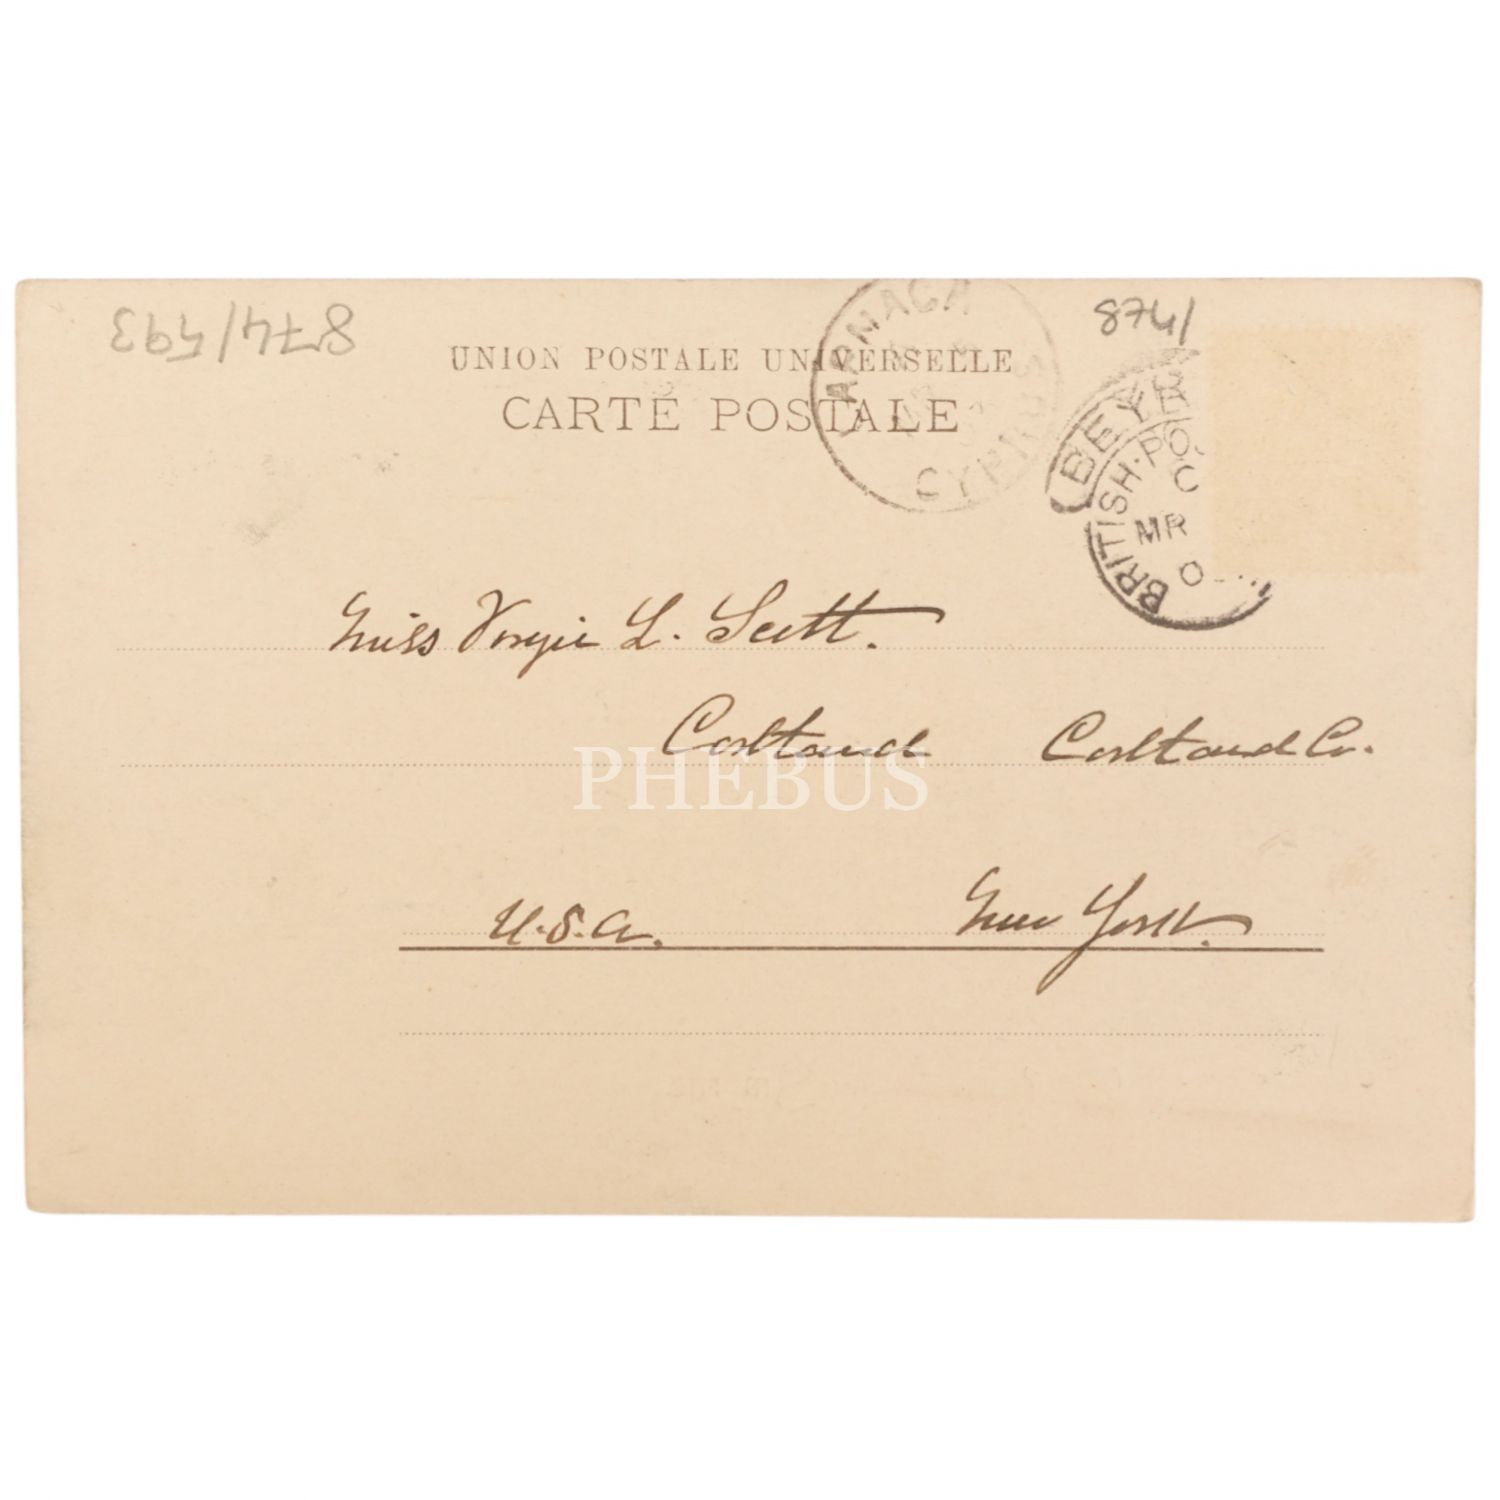 874/593
874/
UNION POSTALE UNIVERSELLE
CARTE POSTALE
LARNACA
CYPRUS
BEYR
BRITISH·PO
C
MR
0
Miss Vergie L. Scott.
Cortland Cortland Co.
PHEBUS
U.S.A. New York.